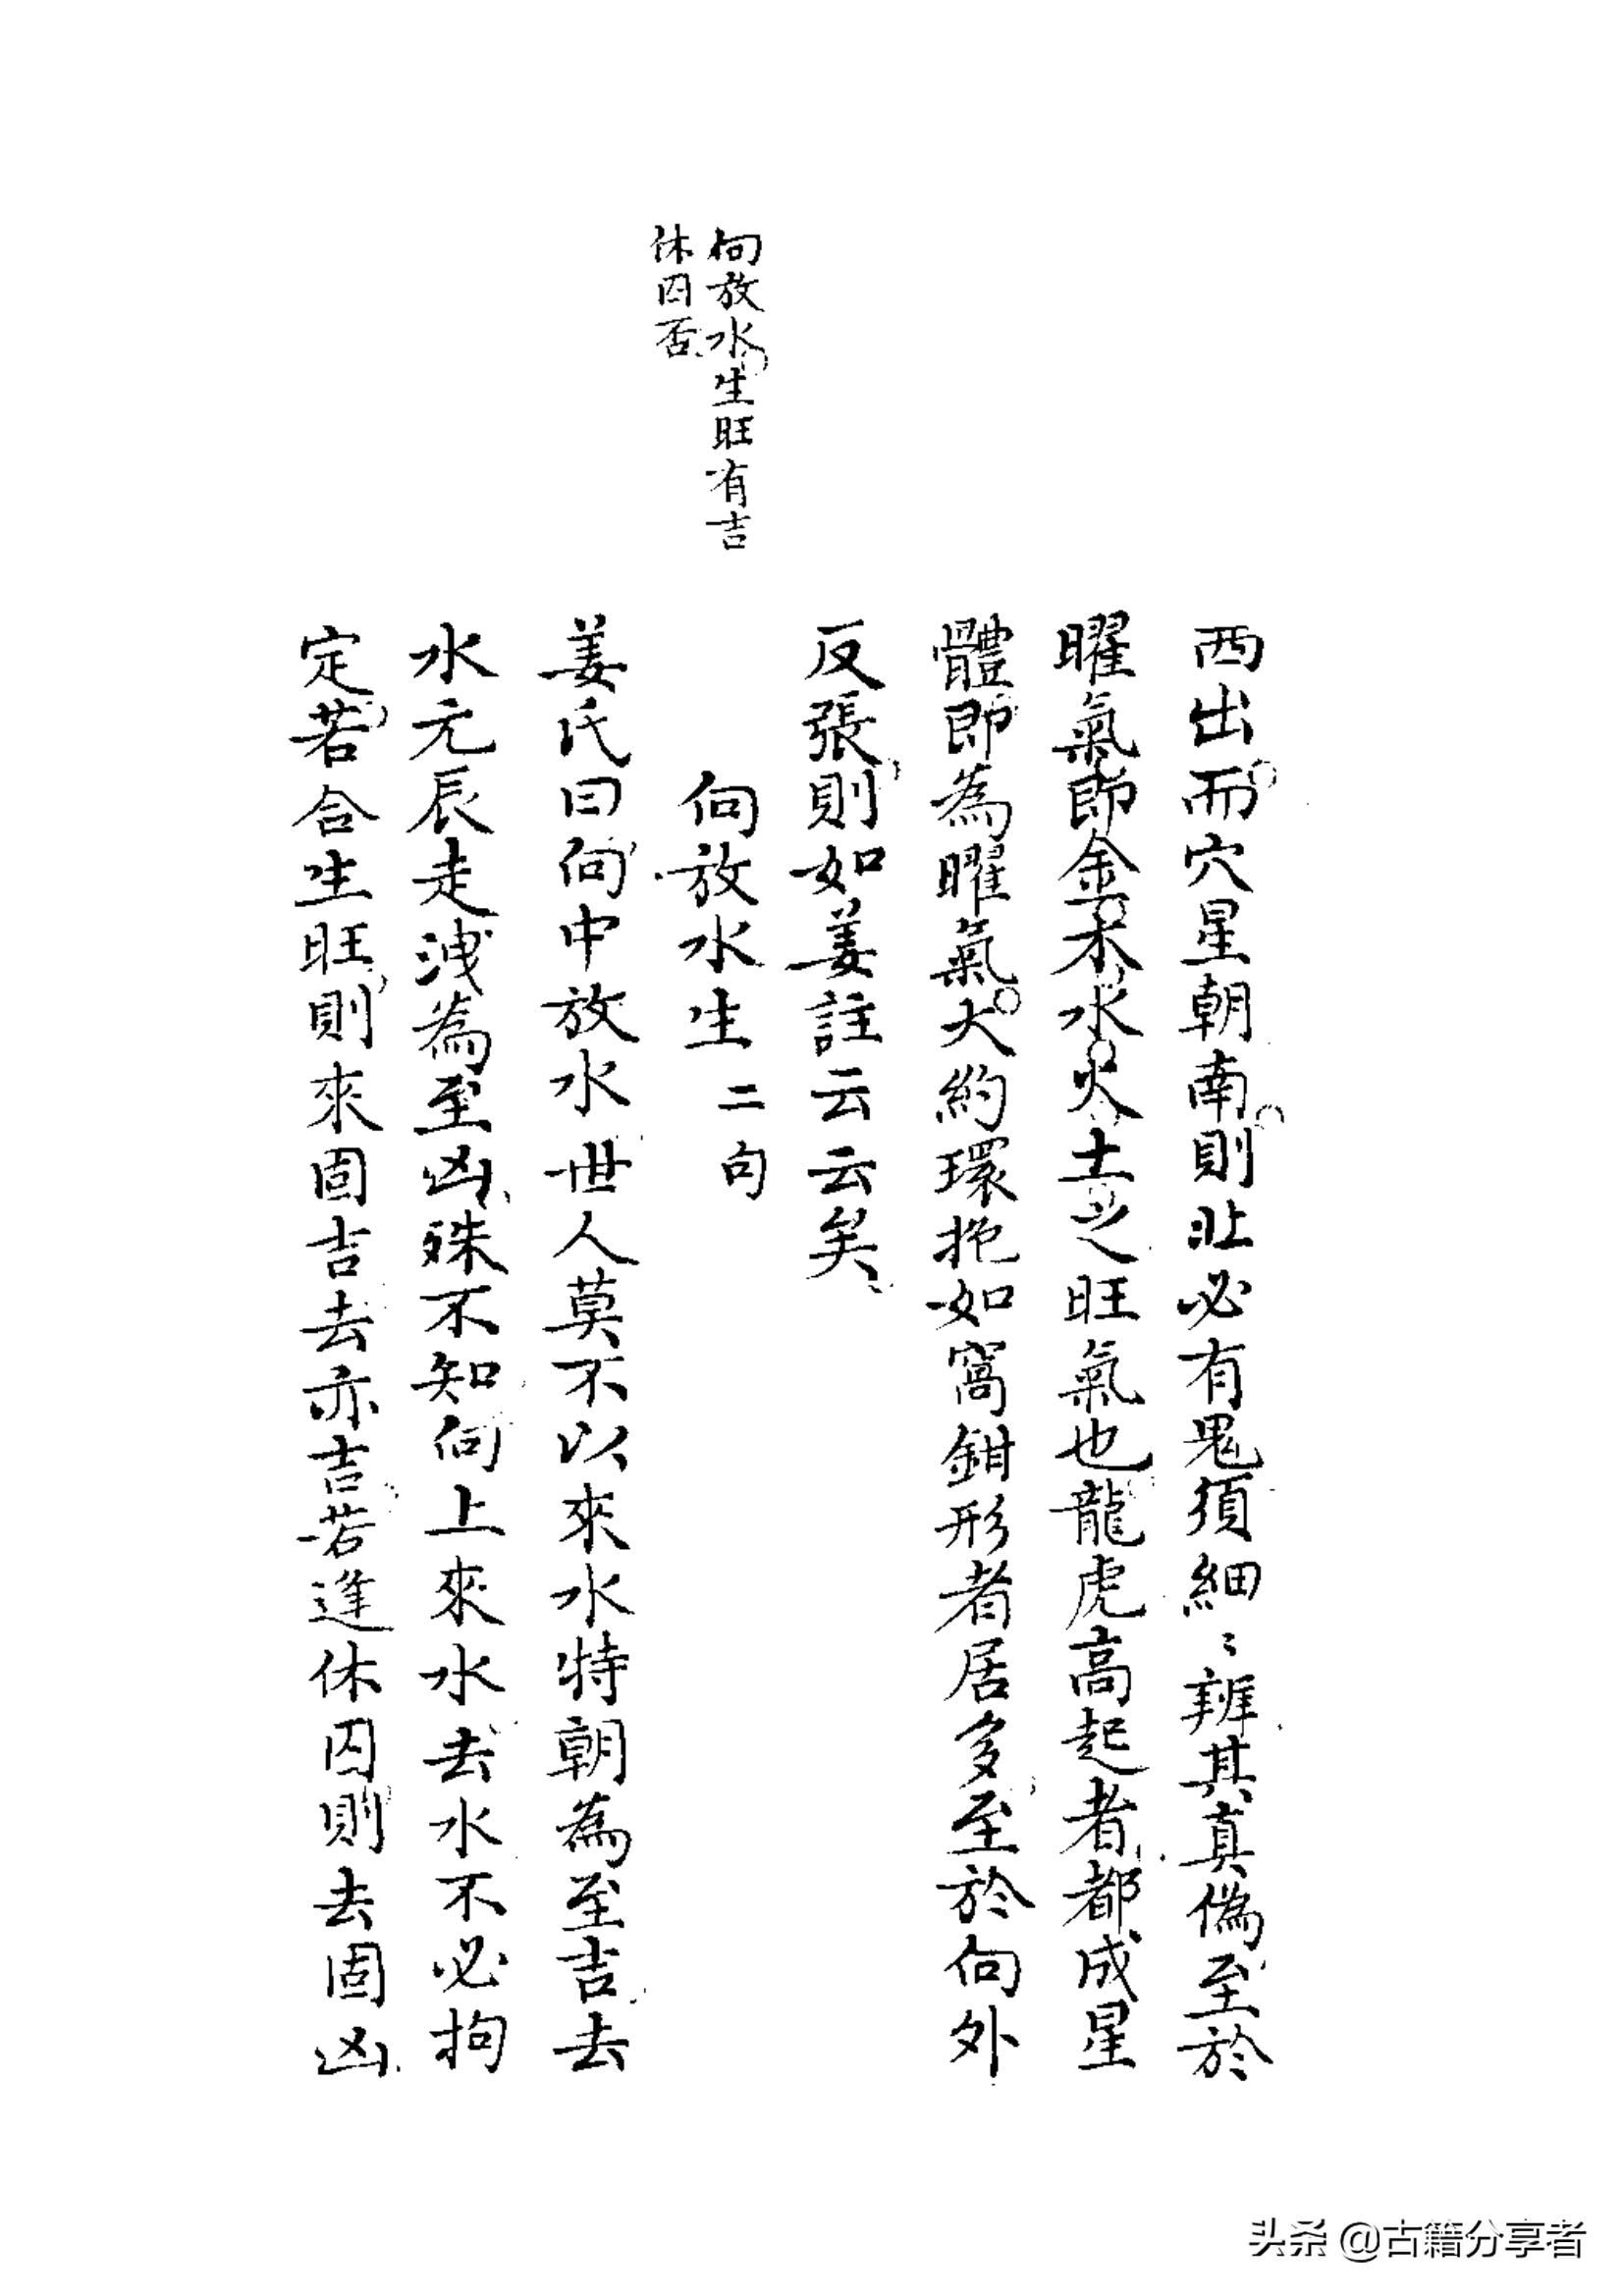 向放水生旺有吉
休囚否
西出而穴星朝南則北必有鬼須細〻辨其真偽至於
曜氣即金木水火土之旺氣也龍虎高起者都成星
體即為曜氣大約環抱如窩鉗形者居多至於向外
反張則如姜註云云矣
向放水生 二句
姜氏曰向中放水世人莫不以來水特朝為至吉去
水元辰走洩為至凶殊不知向上來水去水不必拘
定若合生旺則來固吉去亦吉若逢休囚則去固凶
头条 @古籍分享者